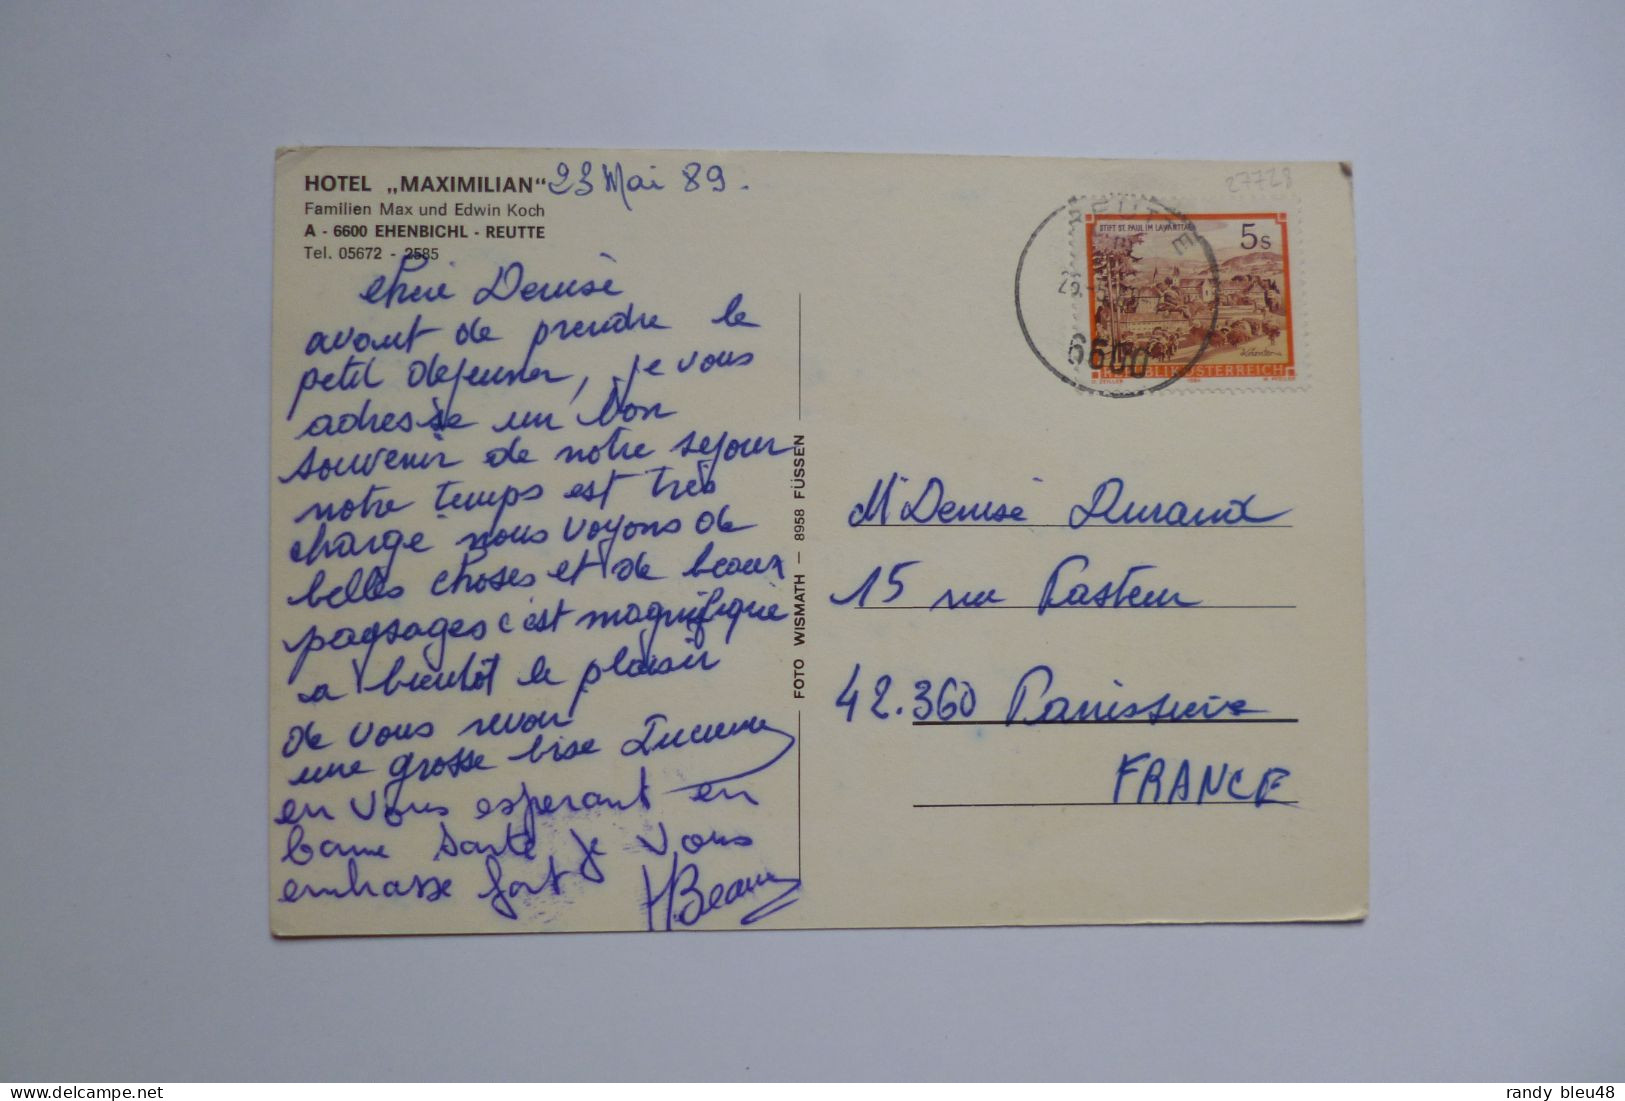 HOTEL „MAXIMILIAN" 23 Mai 89.
Familien Max und Edwin Koch
A - 6600 EHENBICHL - REUTTE
Tel. 05672 - 2585
Chère Denise
avant de prendre le
petit dejeuner, je vous
adresse un bon
souvenir de notre sejour
notre temps est très
charge nous voyons de
belles choses et de beaux
paysages c'est magnifique
a bientôt le plaisir
de vous revoir
une grosse bise Lucienne
en vous esperant en
bonne santé je vous
embrasse fort
FOTO WISMATH — 8958 FÜSSEN
27728
REUTTE
6600
STIFT ST. PAUL IM LAVANTTAL
5s
REPUBLIK ÖSTERREICH
O. ZEILLER 1984 W. PFEILER
Denise Durand
15 rue Pasteur
42.360 Panissière
FRANCE
randy bleu48